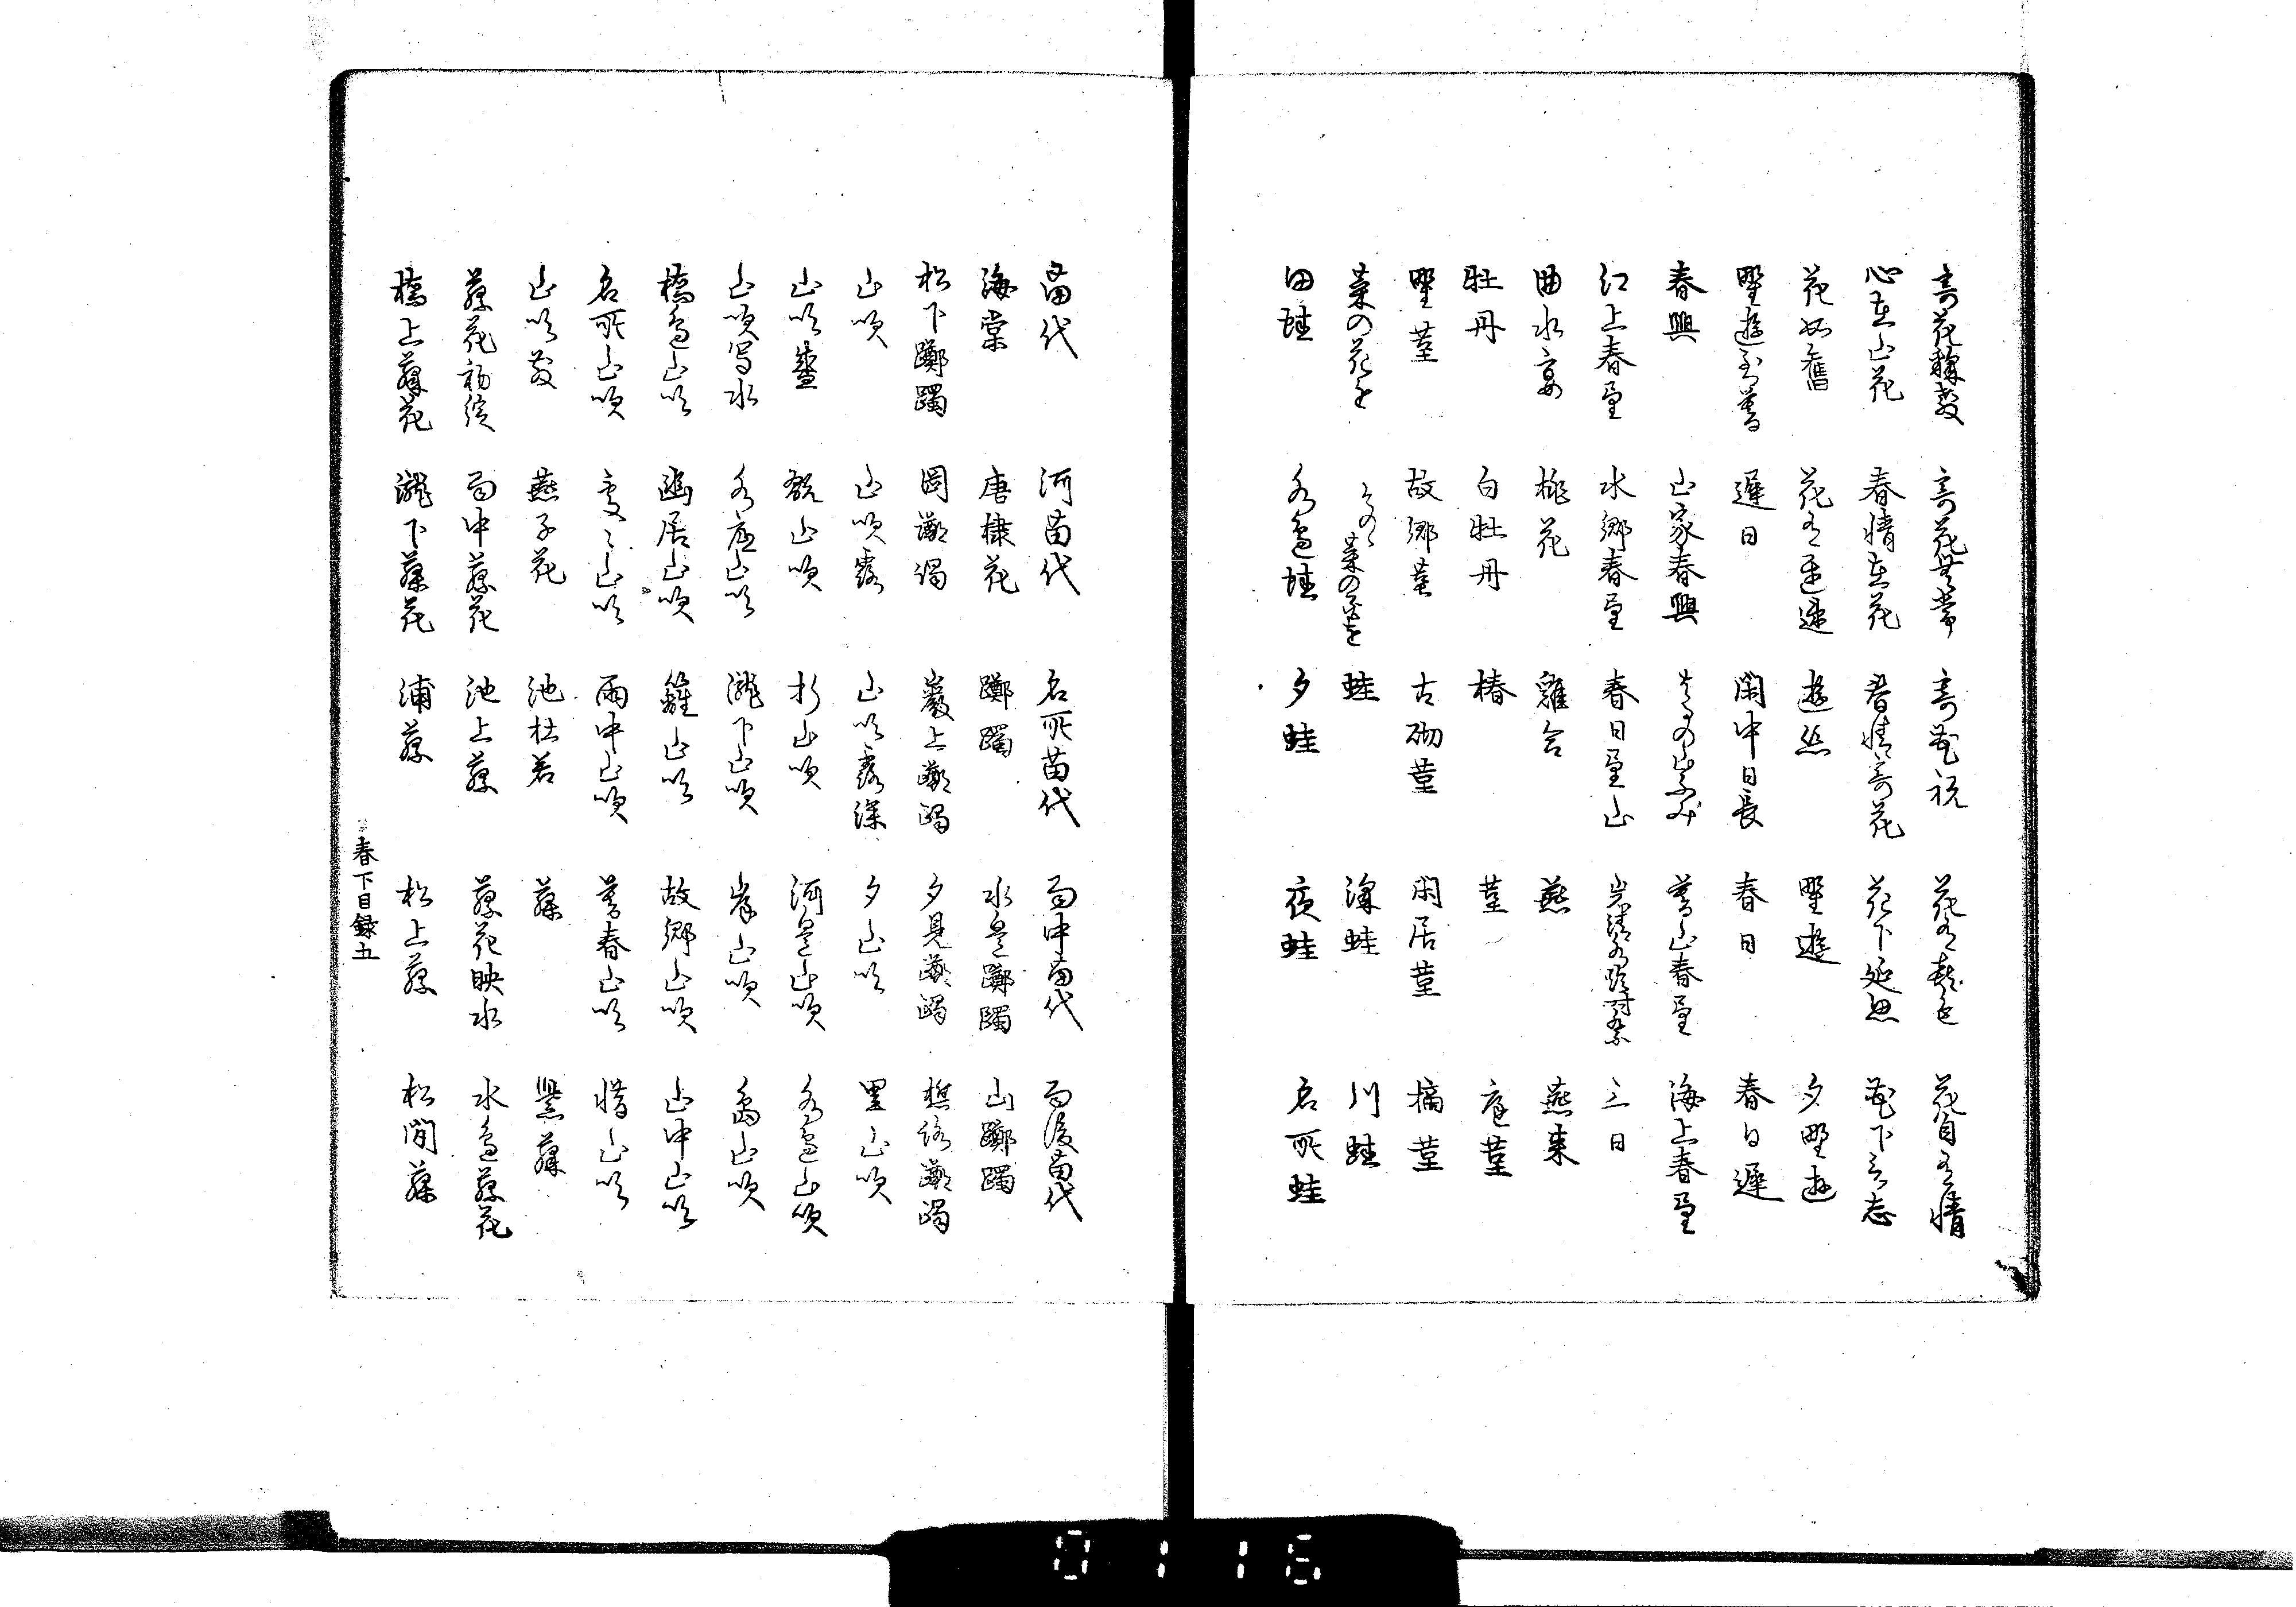 寄花釈教 寄花無常 寄花祝 花有歓色 花自有情
心在山花 春情在花 春情寄花 花下延思 花下言志
花如舊 花有遅速 遊糸 野遊 夕野遊
野遊至暮 遅日 閑中日長 春日 春日遅
春興 山家春興 暮山春望 海上春望
江上春望 水郷春望 春日望山 三日
曲水宴 桃花 雞合 燕 燕来
牡丹 白牡丹 椿 菫 庭菫
野菫 故郷菫 古砌菫 閑居菫 摘菫
菜の花を 菜の花を 蛙 深蛙 川蛙
田蛙 水邊蛙 夕蛙 夜蛙 名所蛙
苗代 河苗代 名所苗代 雨中苗代 雨後苗代
海棠 唐棣花 躑躅 水邊躑躅 山躑躅
松下躑躅 岡躑躅 巌上躑躅 夕見躑躅 樵路躑躅
山吹 山吹露 山吹露深 夕山吹 里山吹
山吹盛 翫山吹 折山吹 河邊山吹 水邊山吹
山吹写水 水底山吹 瀧下山吹 岸山吹 島山吹
橋邊山吹 幽居山吹 籬山吹 故郷山吹 山中山吹
名所山吹 処々山吹 雨中山吹 暮春山吹 惜山吹
山吹散 燕子花 池杜若 藤 紫藤
藤花初綻 雨中藤花 池上藤 藤花映水 水邊藤花
橋上藤花 瀧下藤花 浦藤 松上藤 松間藤
春下目録五
0116